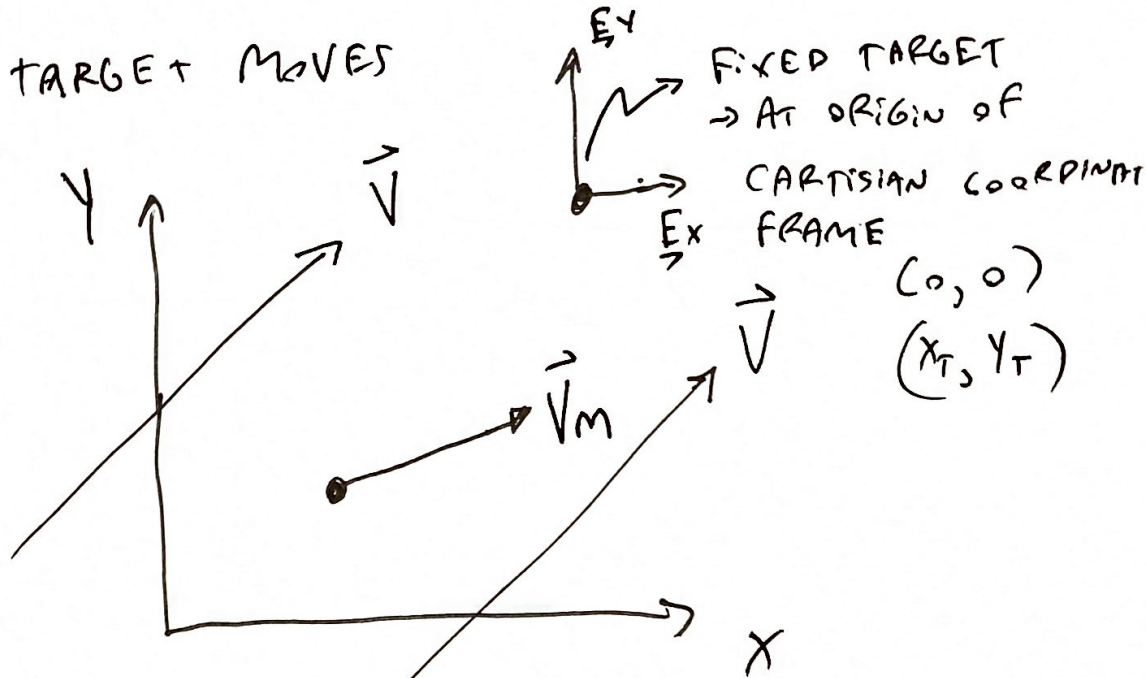 TARGET MOVES
EY
FIXED TARGET
→ AT ORIGIN OF
CARTISIAN COORDINAT
EX FRAME
(0, 0)
(XT, YT)
Y
V
V
Vm
X